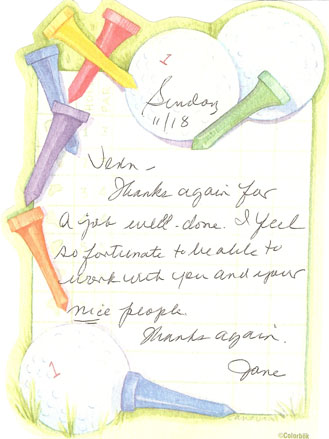 1
Sunday
11/18
Venn -
Thanks again for
a job well-done. I feel
so fortunate to be able to
work with you and your
nice people.
Thanks again.
Jane
1
©Colorbök